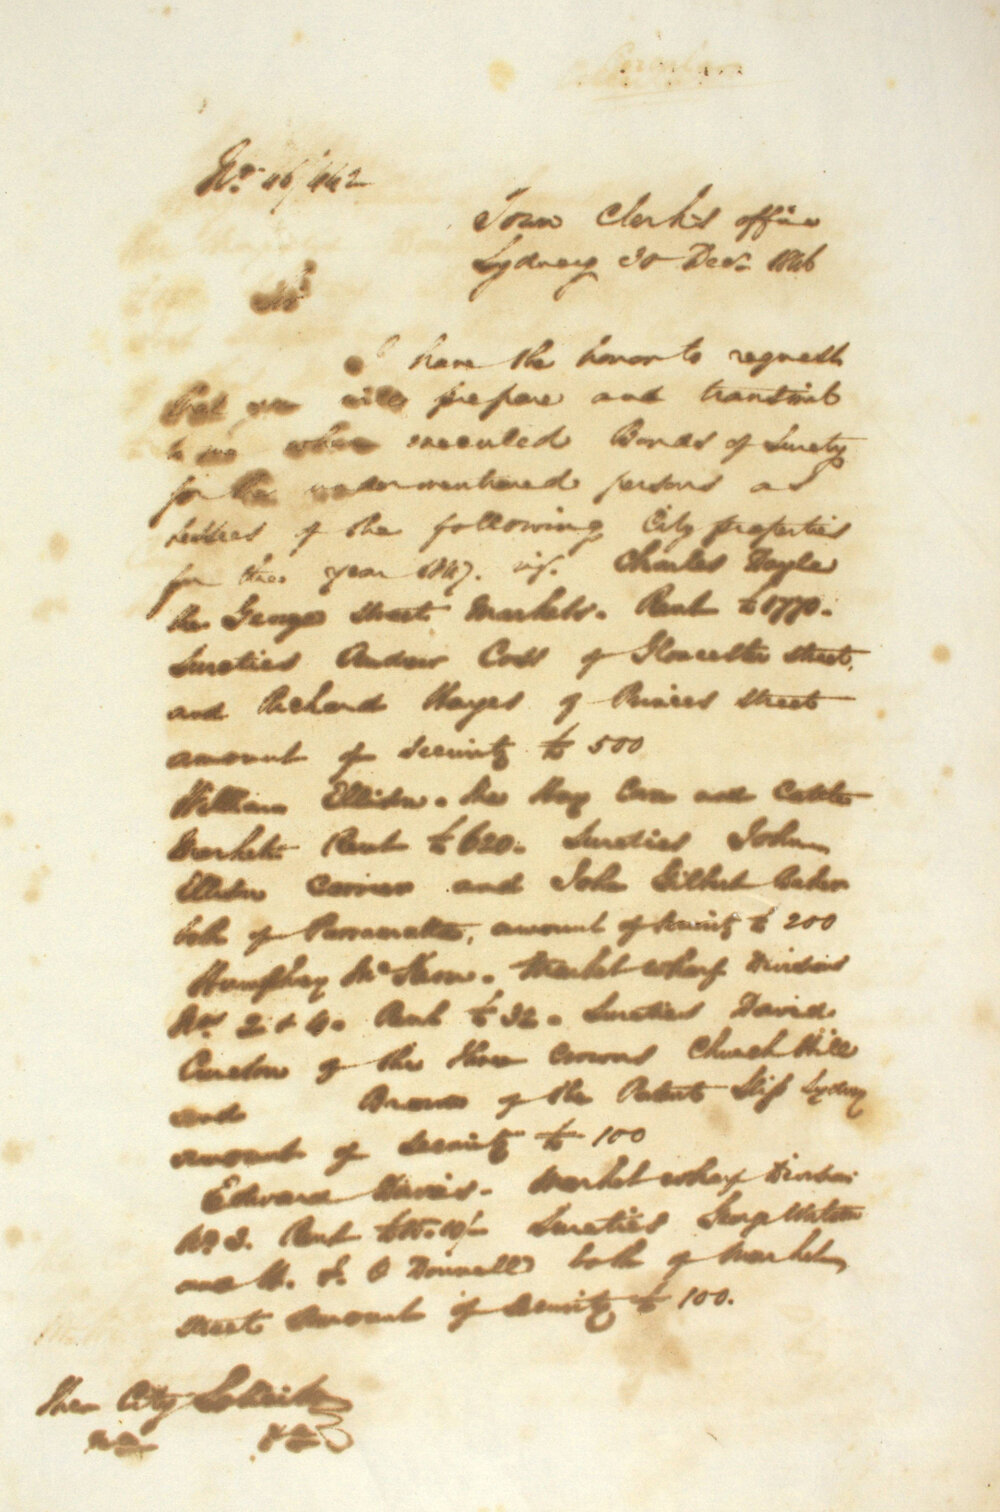 No. 46/442
Town Clerk's office
Sydney 30 Decr. 1846
Sir
I have the honor to request
that you will prepare and transmit
to me when executed Bonds of Surety
for the undermentioned persons as
lessees of the following City properties
for the year 1847. viz. Charles Doyle
the George Street Markets. Rent £1770.
Sureties Andrew Coss of Gloucester Street,
and Richard Hayes of Princes Street
amount of Security £500
William Ellison. the Hay Corn and Cattle
Markets Rent £620. Sureties John
Ellison and John Gilbert Baker
both of Parramatta, amount of Security £200
Humphrey McKeon. Market wharf Divisions
Nos. 2 & 4. Rent £32. Sureties David
of the Three Crowns Church Hill
and Brown of the Patent Slip Sydney
amount of Security £100
Edward Davis. Market wharf Division
No 3. Rent Sureties George Watson
and J. O'Donnell both of Market
street Amount of Security £100.
The City Solicitor
&c &c